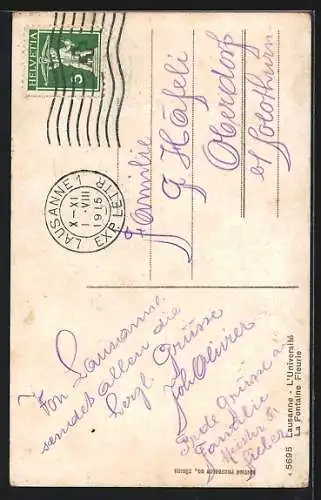 HELVETIA
5
LAUSANNE 1
X–XI
1.VIII
1915
EXP. LETTR.
Familie
Häfeli
Oberdorf
b/ Solothurn
Von Lausanne
sendet allen die
herzl. Grüsse
Olivier
Grüsse a
Familie
5695 Lausanne - L'Université
La Fontaine Fleurie